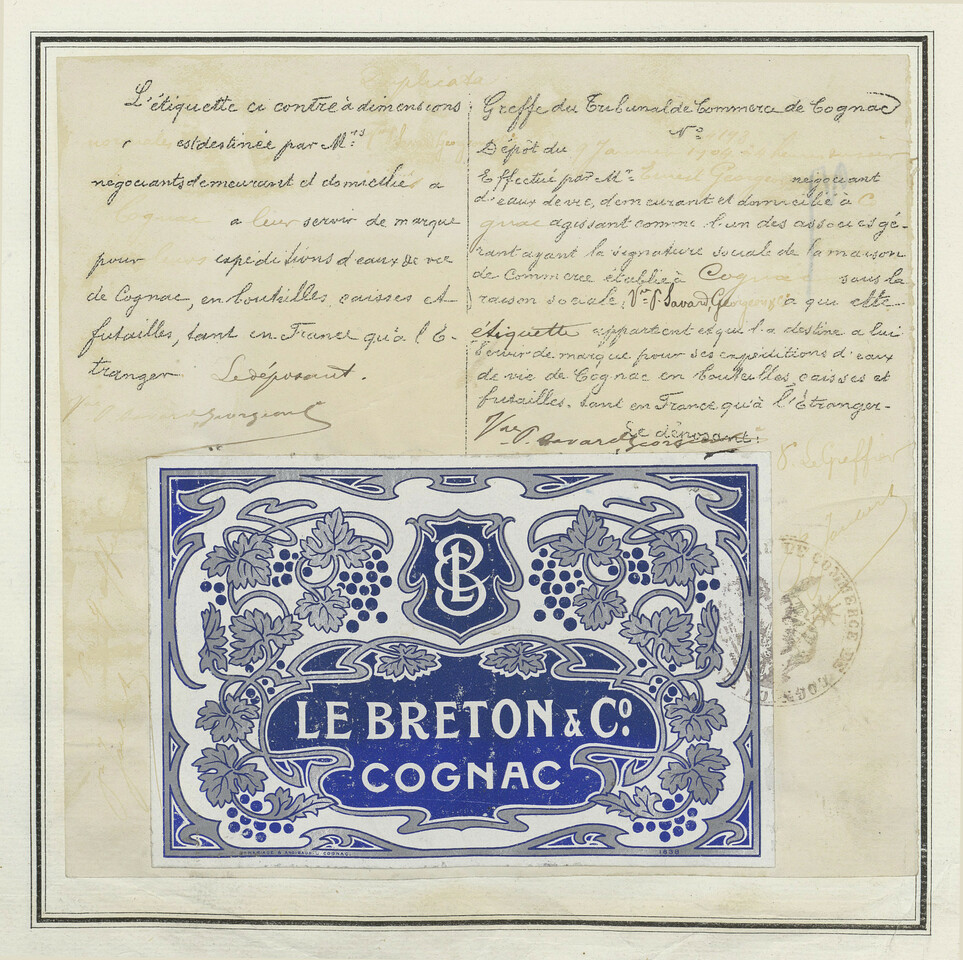 Duplicata
L'étiquette ci contre à dimensions
est destinée par M.rs
négociants demeurant et domiciliés a
Cognac a leur servir de marque
pour leurs expéditions d'eaux de vie
de Cognac, en bouteilles, caisses et
futailles, tant en France qu'à l'E-
tranger Le déposant.
Greffe du Tribunal de Commerce de Cognac
N.o
Dépôt du 9 Janvier 1904
Effectué par M.r Georges négociant
d'eaux de vie, demeurant et domicilié à Co
gnac agissant comme l'un des associés gé-
rant ayant la signature sociale de la maison
de Commerce établie à Cognac sous la
raison sociale, Vve P. Savard, Georgeon & Co a qui cette
étiquette appartient et qui l'a destine a lui
servir de marque pour ses expéditions d'eaux
de vie de Cognac en bouteilles, caisses et
futailles. tant en France qu'à l'Etranger-
Le déposant:
Vve P. Savard Georgeon
Le Greffier
DE COMMERCE DE COGN
LBC
LE BRETON & Co.
COGNAC
1838